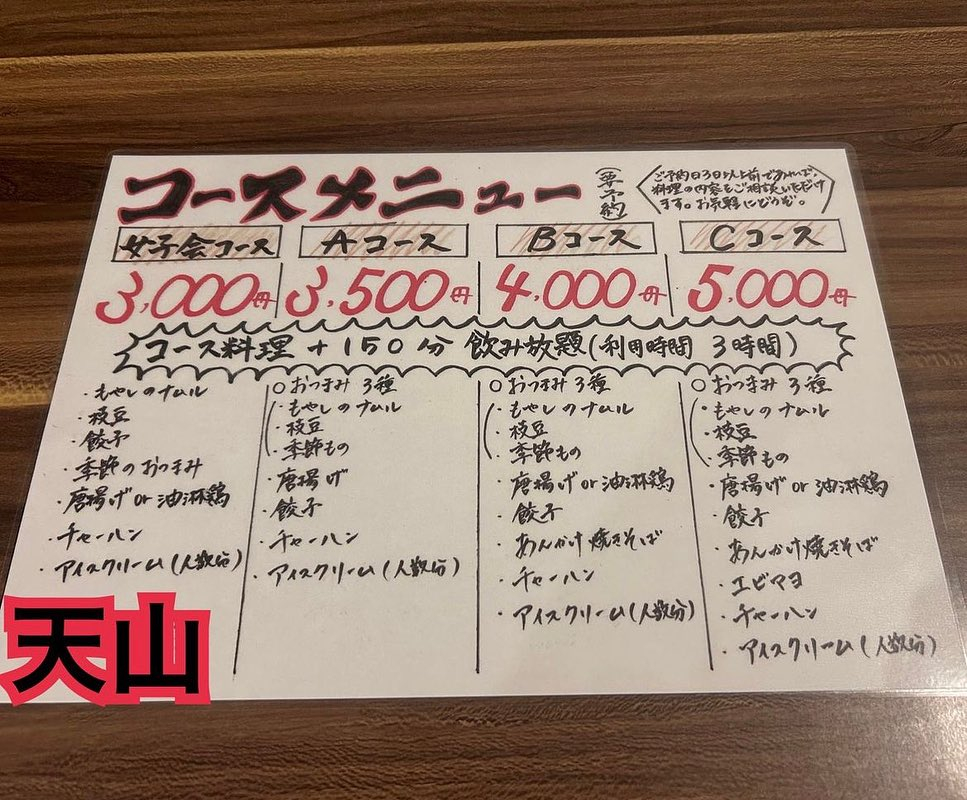 コースメニュー
(要予約)
ご予約日3日以上前であれば、
料理の内容をご相談いただけ
ます。お気軽にどうぞ。
女子会コース
3,000円
Aコース
3,500円
Bコース
4,000円
Cコース
5,000円
コース料理 + 150分 飲み放題(利用時間 3時間)
・もやしのナムル
・枝豆
・餃子
・季節のおつまみ
・唐揚げor油淋鶏
・チャーハン
・アイスクリーム(人数分)
○おつまみ3種
・もやしのナムル
・枝豆
・季節もの
・唐揚げ
・餃子
・チャーハン
・アイスクリーム(人数分)
○おつまみ3種
・もやしのナムル
・枝豆
・季節もの
・唐揚げor油淋鶏
・餃子
・あんかけ焼きそば
・チャーハン
・アイスクリーム(人数分)
○おつまみ3種
・もやしのナムル
・枝豆
・季節もの
・唐揚げor油淋鶏
・餃子
・あんかけ焼きそば
・エビマヨ
・チャーハン
・アイスクリーム(人数分)
天山